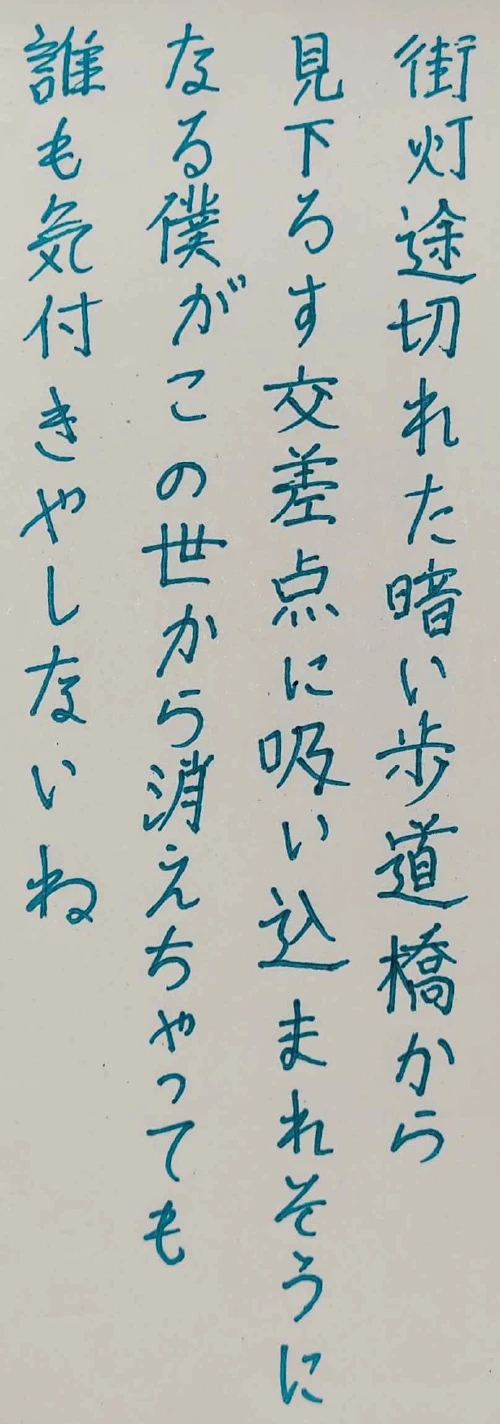 街灯途切れた暗い歩道橋から
見下ろす交差点に吸い込まれそうに
なる僕がこの世から消えちゃっても
誰も気付きやしないね